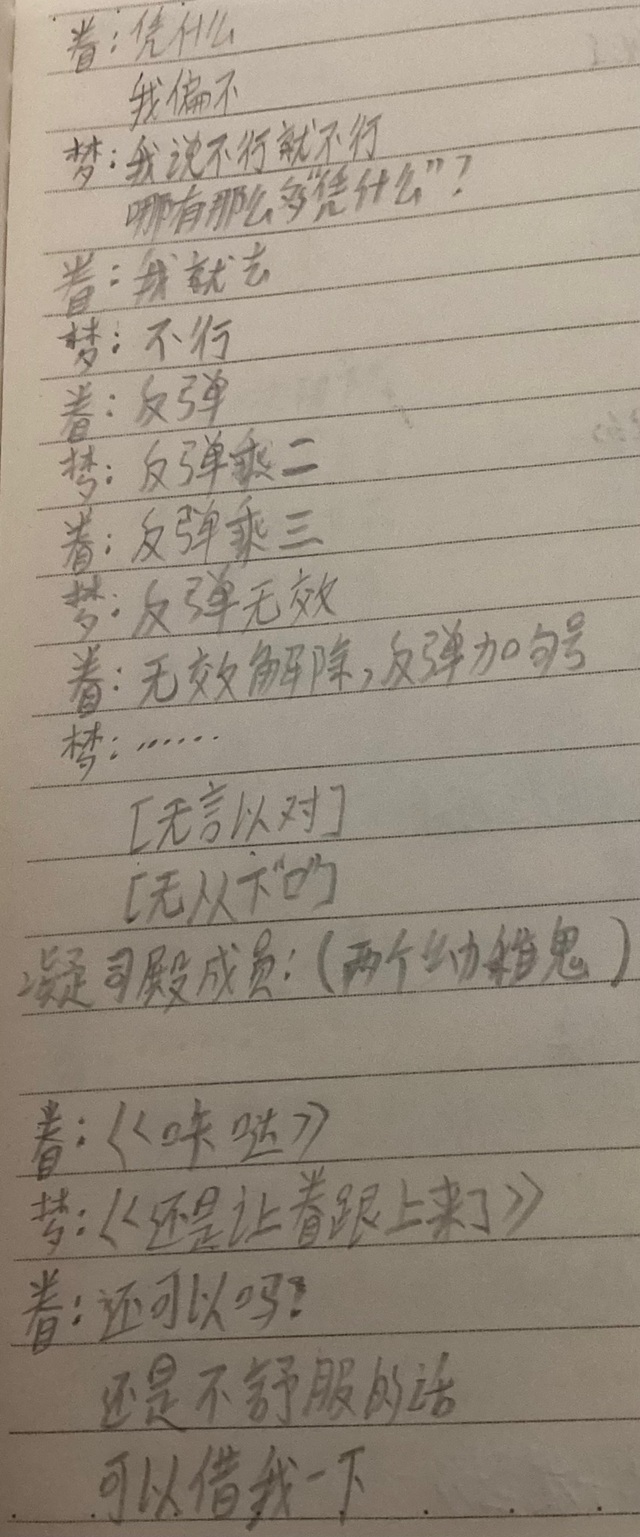 眷：凭什么
我偏不
梦：我说不行就不行
哪有那么多“凭什么”？
眷：我就去
梦：不行
眷：反弹
梦：反弹乘二
眷：反弹乘三
梦：反弹无效
眷：无效解除，反弹加句号
梦：……
[无言以对]
[无从下“口”]
凝司殿成员：（两个幼稚鬼）
眷：《咔哒》
梦：《还是让眷跟上来了》
眷：还可以吗？
还是不舒服的话
可以借我一下